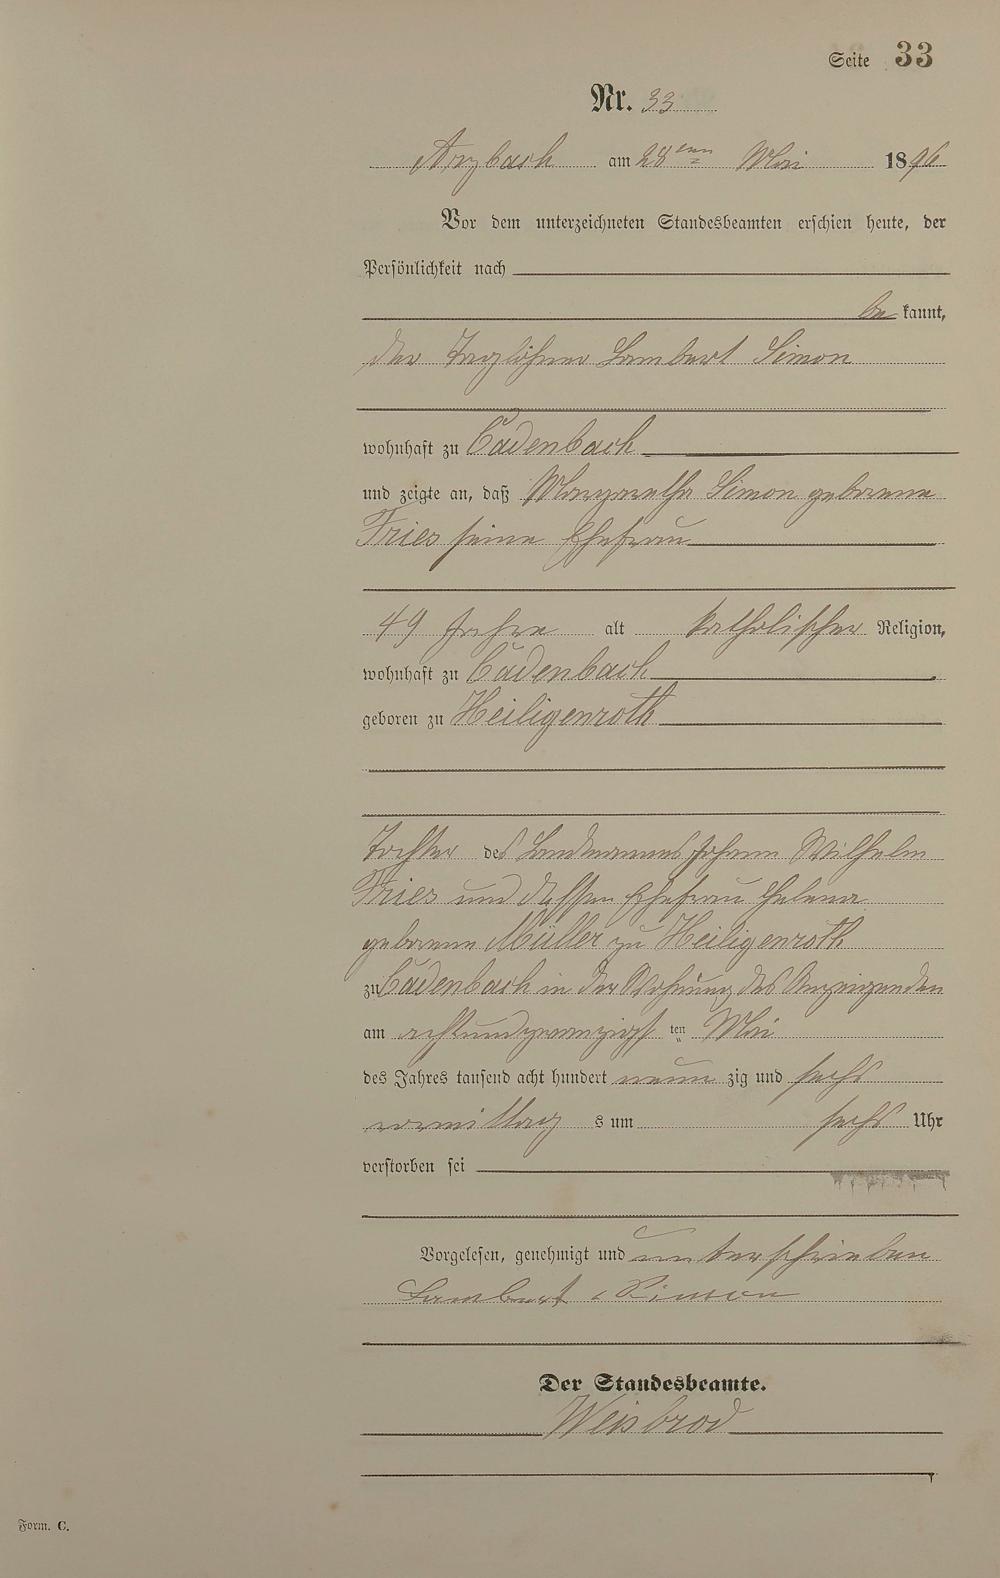 Seite 33
Nr. 33
Arzbach am 28ten Mai 1896
Vor dem unterzeichneten Standesbeamten erschien heute, der
Persönlichkeit nach
be kannt,
der Taglöhner Lambert Simon
wohnhaft zu Cadenbach
und zeigte an, daß Margaretha Simon geborene
Fries seine Ehefrau
49 Jahre alt katholischer Religion,
wohnhaft zu Cadenbach
geboren zu Heiligenroth
Tochter des Landmannes Johann Wilhelm
Fries und dessen Ehefrau Helena
geborene Müller zu Heiligenroth
zu Cadenbach in der Wohnung des Anzeigenden
am achtundzwanzigst ten Mai
des Jahres tausend acht hundert neun zig und sechs
vormittag s um sechs Uhr
verstorben sei
Vorgelesen, genehmigt und unterschrieben
Lambert Simon
Der Standesbeamte.
Weisbrod
Form. C.